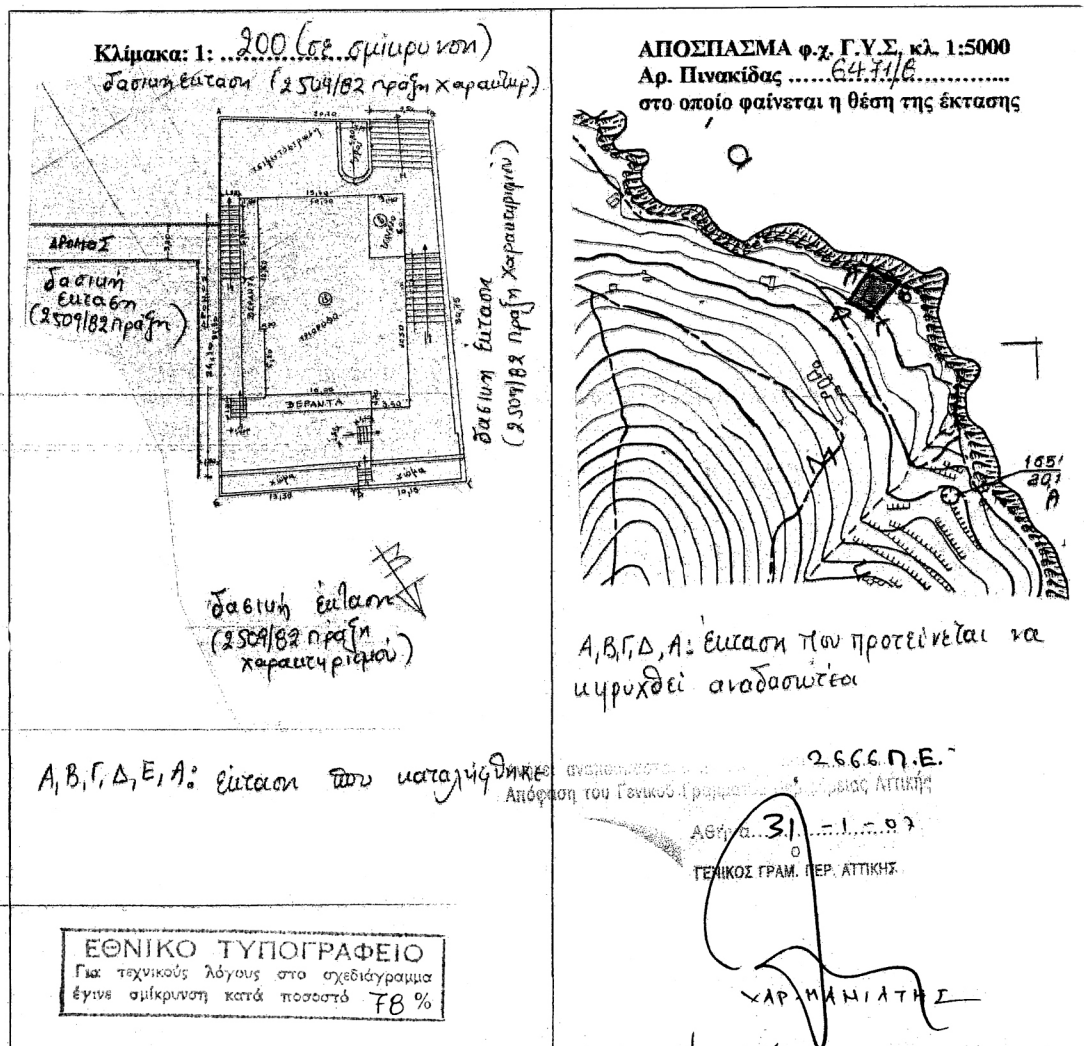 Κλίμακα: 1: 200 (σε σμίκρυνση)
δασική έκταση (2509/82 πράξη χαρακτηρ)
ΔΡΟΜΟΣ
δασική
έκταση
(2509/82 πράξη)
ΒΕΡΑΝΤΑ
ΒΕΡΑΝΤΑ
χώμα
χώμα
13,30
10,10
δασική έκταση
(2509/82 πράξη χαρακτηρισμού)
δασική έκταση
(2509/82 πράξη
χαρακτηρισμού)
Α,Β,Γ,Δ,Ε,Α: έκταση που καταλήφθηκε
ΕΘΝΙΚΟ ΤΥΠΟΓΡΑΦΕΙΟ
Για τεχνικούς λόγους στο σχεδιάγραμμα
έγινε σμίκρυνση κατά ποσοστό 78 %
ΑΠΟΣΠΑΣΜΑ φ.χ. Γ.Υ.Σ. κλ. 1:5000
Αρ. Πινακίδας ......6471/6............
στο οποίο φαίνεται η θέση της έκτασης
Α,Β,Γ,Δ,Α: έκταση που προτείνεται να
κηρυχθεί αναδασωτέα
2666 Π.Ε.
Απόφαση του Γενικού Αττικής
Αθήνα 31 -1-07
ΓΕΝΙΚΟΣ ΓΡΑΜ. ΠΕΡ. ΑΤΤΙΚΗΣ
ΧΑΡ. ΜΑΝΙΑΤΗΣ